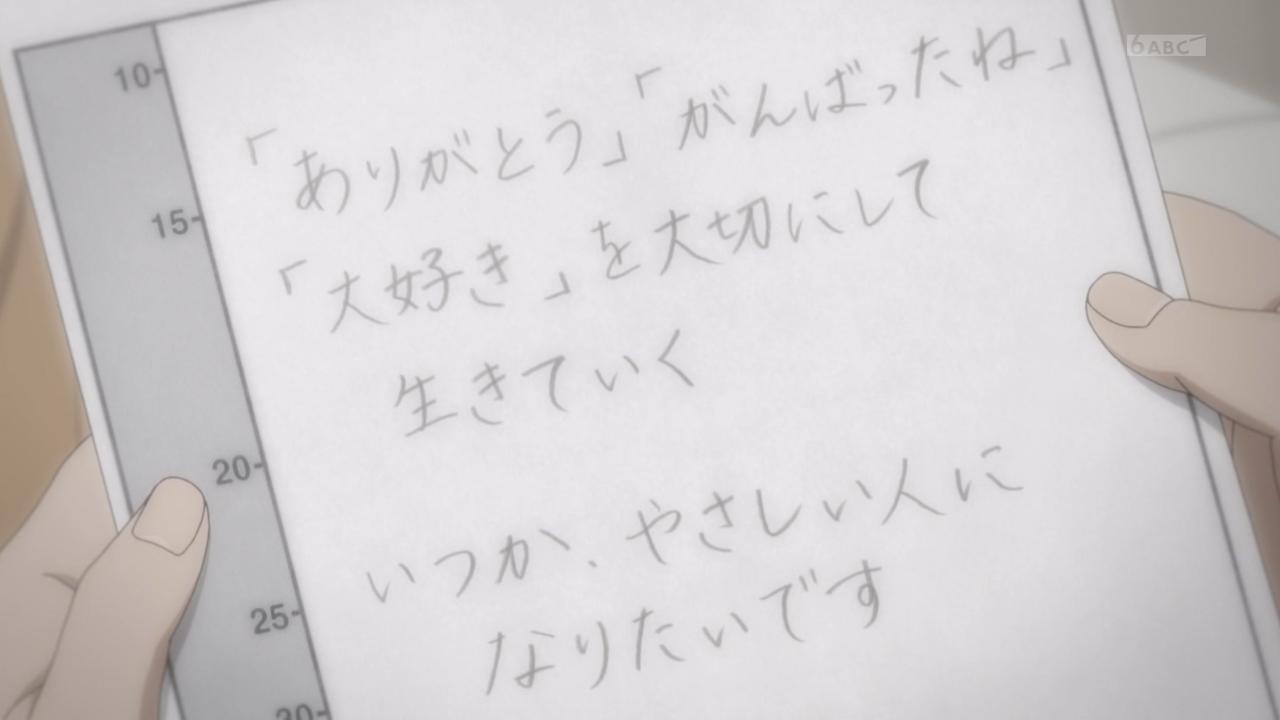 10-
「ありがとう」「がんばったね」
15-
「大好き」を大切にして
生きていく
20-
いつか、やさしい人に
25-
なりたいです
30-
6ABC